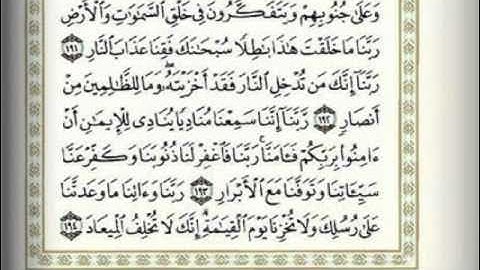 وَعَلَىٰ جُنُوبِهِمْ وَيَتَفَكَّرُونَ فِى خَلْقِ ٱلسَّمَٰوَٰتِ وَٱلْأَرْضِ
رَبَّنَا مَا خَلَقْتَ هَٰذَا بَٰطِلًا سُبْحَٰنَكَ فَقِنَا عَذَابَ ٱلنَّارِ ١٩١
رَبَّنَآ إِنَّكَ مَن تُدْخِلِ ٱلنَّارَ فَقَدْ أَخْزَيْتَهُۥ ۖ وَمَا لِلظَّٰلِمِينَ مِنْ
أَنصَارٍ ١٩٢ رَّبَّنَآ إِنَّنَا سَمِعْنَا مُنَادِيًا يُنَادِى لِلْإِيمَٰنِ أَنْ
ءَامِنُوا۟ بِرَبِّكُمْ فَـَٔامَنَّا ۚ رَبَّنَا فَٱغْفِرْ لَنَا ذُنُوبَنَا وَكَفِّرْ عَنَّا
سَيِّـَٔاتِنَا وَتَوَفَّنَا مَعَ ٱلْأَبْرَارِ ١٩٣ رَبَّنَا وَءَاتِنَا مَا وَعَدتَّنَا
عَلَىٰ رُسُلِكَ وَلَا تُخْزِنَا يَوْمَ ٱلْقِيَٰمَةِ ۗ إِنَّكَ لَا تُخْلِفُ ٱلْمِيعَادَ ١٩٤